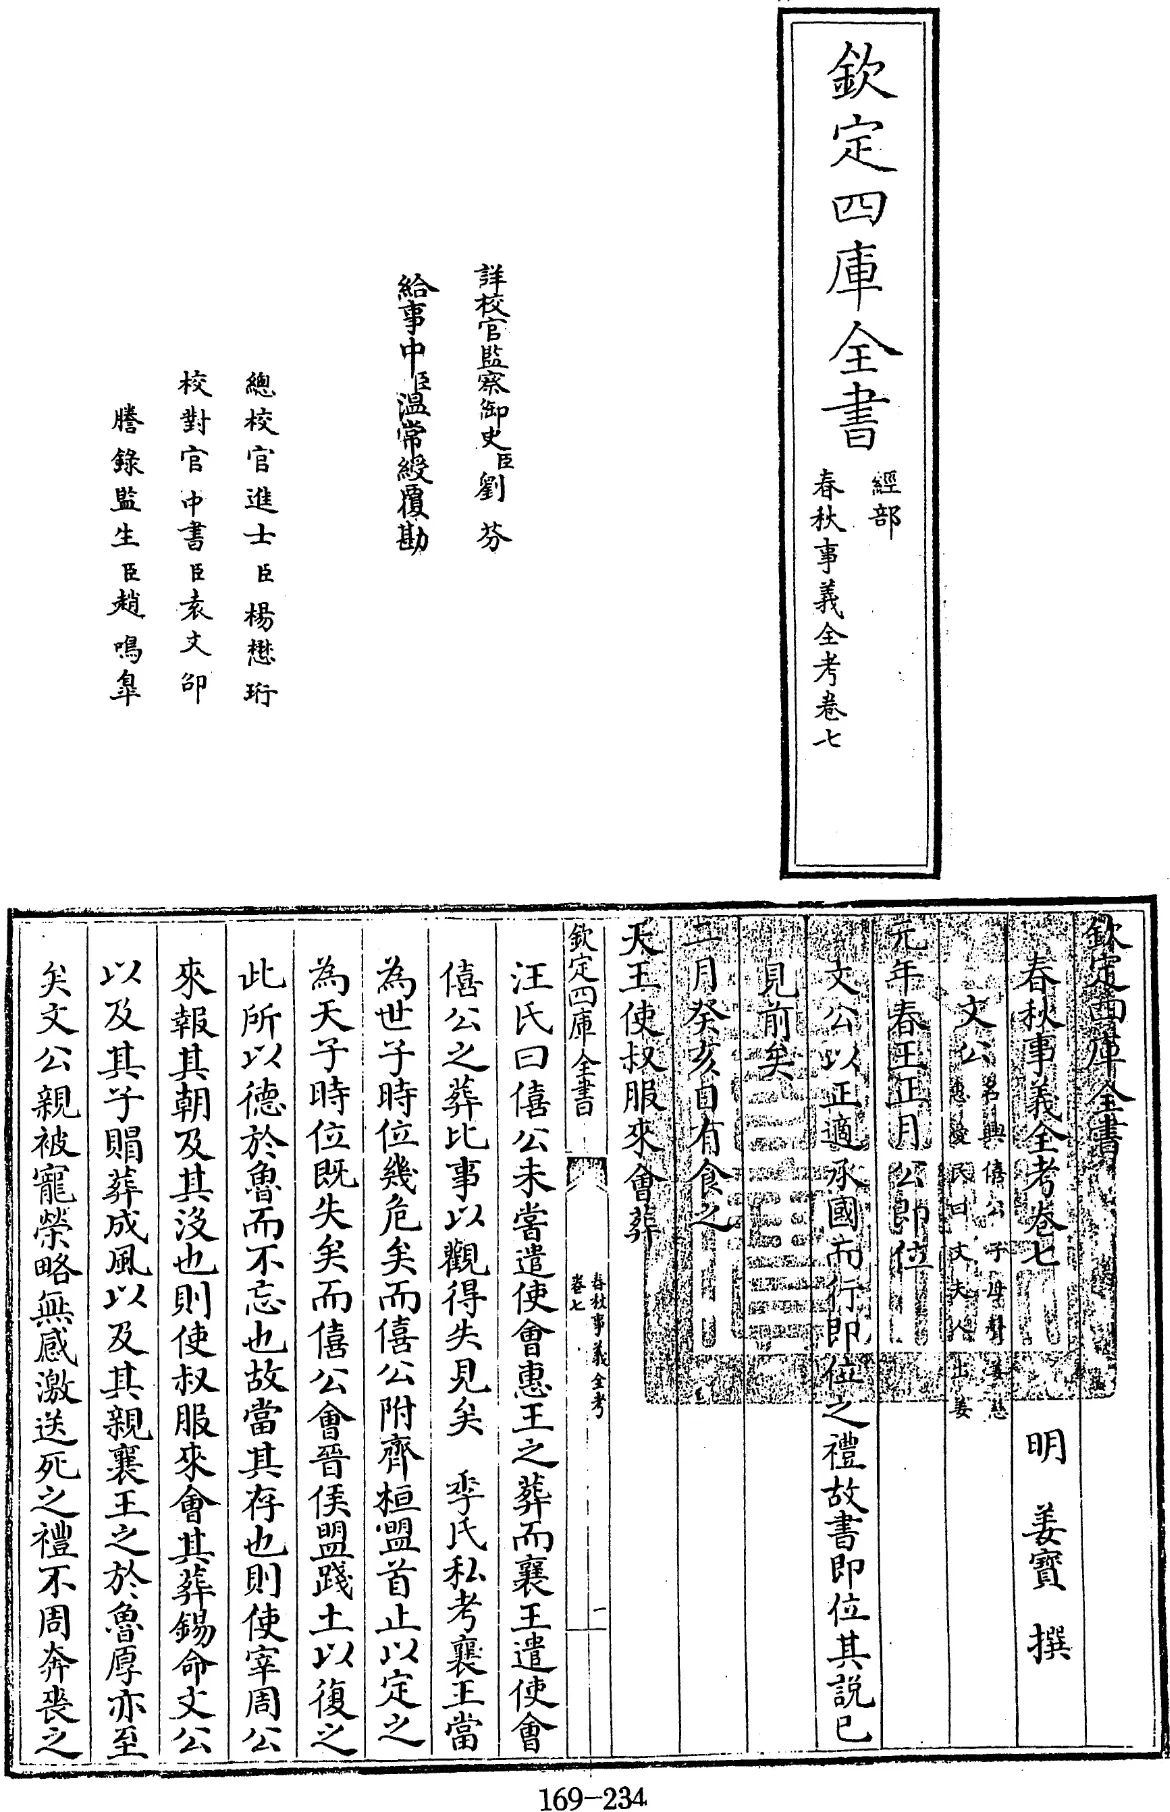 欽定四庫全書
經部
春秋事義全考卷七
詳校官監察御史臣劉芬
給事中臣溫常綬覆勘
總校官進士臣楊懋珩
校對官中書臣袁文卲
謄錄監生臣趙鳴臯
欽定四庫全書
春秋事義全考卷七
明 姜寶 撰
文公
名興僖公子母聲姜慈
惠愛民曰文夫人出姜
元年春王正月公即位
文公以正適承國而行即位之禮故書即位其說已
見前矣
二月癸亥日有食之
天王使叔服來會葬
欽定四庫全書
春秋事義全考
卷七
一
汪氏曰僖公未嘗遣使會惠王之葬而襄王遣使會
僖公之葬比事以觀得失見矣 季氏私考襄王當
為世子時位幾危矣而僖公附齊桓盟首止以定之
為天子時位既失矣而僖公會晉侯盟踐土以復之
此所以德於魯而不忘也故當其存也則使宰周公
來報其朝及其沒也則使叔服來會其葬錫命文公
以及其子賵葬成風以及其親襄王之於魯厚亦至
矣文公親被寵榮略無感激送死之禮不周奔喪之
169-234